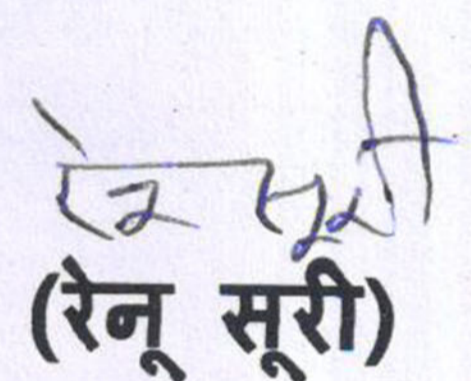 रेनू सूरी
(रेनू सूरी)